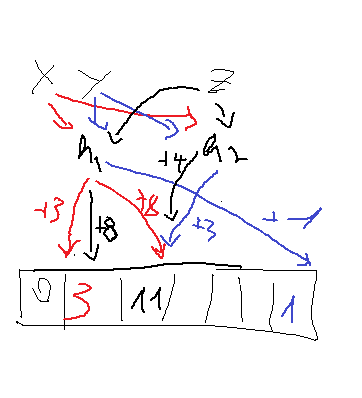 X Y Z
h1 h2
+4
+3 +8 +8 +3 +-1
0 3 11 1